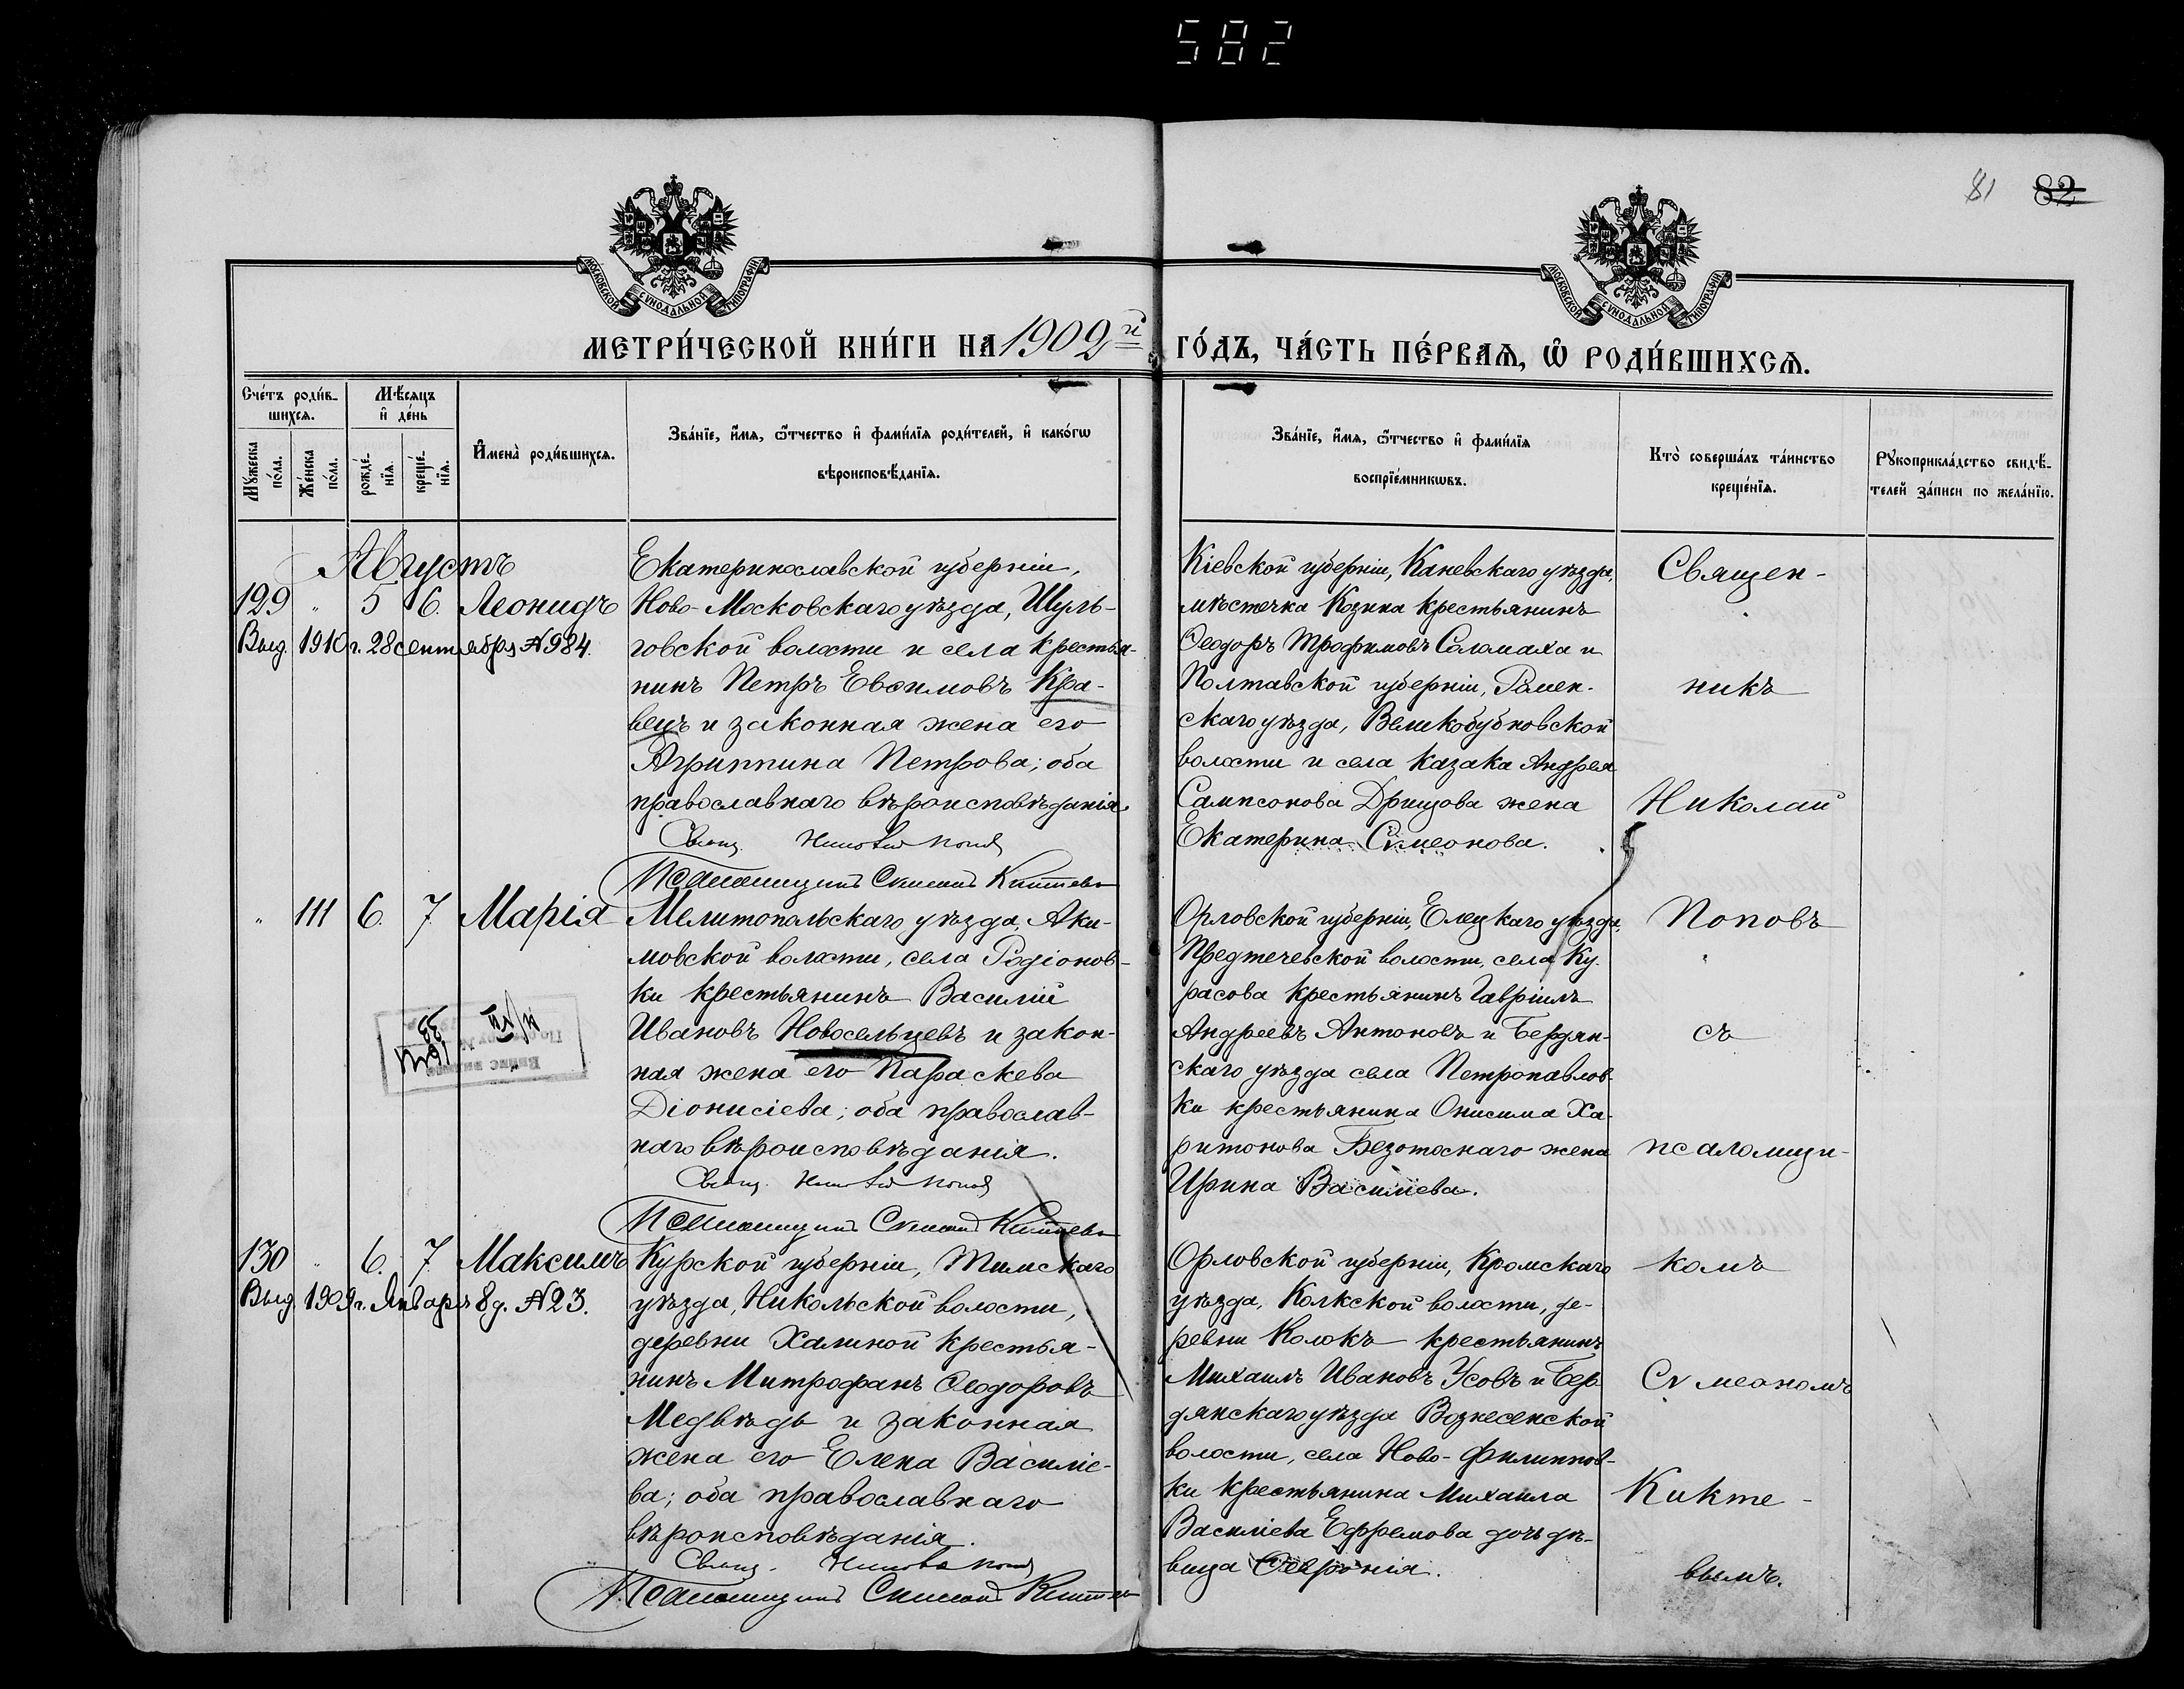 582
81 82
МОСКОВСКОЙ СѴНОДАЛЬНОЙ ТИПОГРАФІИ
МОСКОВСКОЙ СѴНОДАЛЬНОЙ ТИПОГРАФІИ
МЕТРИ́ЧЕСКОЙ КНИ́ГИ НА 1902й ГО́ДЪ, ЧА́СТЬ ПЕ́РВАѦ, Ѡ҆ РОДИ́ВШИХСѦ.
Сче́тъ роди́в-
шихсѧ.
Мѣ́сѧцъ
и҆ де́нь
Мꙋ́жеска по́ла.
Же́нска по́ла.
рожде́-
нїѧ.
креще́-
нїѧ.
И҆мена̀ роди́вшихсѧ.
Зва́нїе, и҆́мѧ, ѻ҆́тчество и҆ фами́лїѧ роди́телей, и҆ како́гѡ
вѣроисповѣ́данїѧ.
Зва́нїе, и҆́мѧ, ѻ҆́тчество и҆ фами́лїѧ
воспрїе́мникѡвъ.
Кто̀ соверша́лъ та́инство
креще́нїѧ.
Рꙋкоприкла́дство свидѣ́-
телей за́писи по жела́нїю.
Августъ
129 " 5 6. Леонидъ
Выд. 1910 г. 28 сентября №984.
Екатеринославской губерніи,
Ново-Московскаго уѣзда, Шуль-
говской волости и села крестья-
нинъ Петръ Евѳимовъ Кра-
вецъ и законная жена его
Агриппина Петрова; оба
православнаго вѣроисповѣданія.
Свящ. Николай Поповъ
Псаломщикъ Сѵмеонъ Киктевъ
Кіевской губерніи, Каневскаго уѣзда,
мѣстечка Козина крестьянинъ
Ѳеодоръ Трофимовъ Саломаха и
Полтавской губерніи, Ромен-
скаго уѣзда, Великобубновской
волости и села казака Андрея
Сампсонова Дрищова жена
Екатерина Сѵмеонова.
" 111 6. 7. Марія
Мелитопольскаго уѣзда, Аки-
мовской волости, села Родіонов-
ки крестьянинъ Василій
Ивановъ Новосельцевъ и закон-
ная жена его Параскева
Діонисіева; оба православ-
наго вѣроисповѣданія.
Свящ. Николай Поповъ
Псаломщикъ Сѵмеонъ Киктевъ
Орловской губерніи, Елецкаго уѣзда,
Предтечевской волости, села Ку-
расова крестьянинъ Гавріилъ
Андреевъ Антоновъ и Бердян-
скаго уѣзда села Петропавлов-
ки крестьянина Онисима Ха-
ритонова Безотоснаго жена
Ирина Василіева.
130 " 6. 7. Максимъ
Выд. 1909 г. Января 8 д. №23.
Курской губерніи, Тимскаго
уѣзда, Никольской волости,
деревни Халиной крестья-
нинъ Митрофанъ Ѳеодоровъ
Медвѣдь и законная
жена его Елена Василіе-
ва; оба православнаго
вѣроисповѣданія.
Свящ. Николай Поповъ
Псаломщикъ Сѵмеонъ Киктевъ
Орловской губерніи, Кромскаго
уѣзда, Колкской волости, де-
ревни Колокъ крестьянинъ
Михаилъ Ивановъ Усовъ и Бер-
дянскаго уѣзда Вознесенской
волости, села Ново-Филиппов-
ки крестьянина Михаила
Василіева Ефремова дочь дѣ-
вица Ѳеѵронія.
Священ-
никъ
Николай
Поповъ
съ
псаломщи-
комъ
Сѵмеономъ
Кикте-
вымъ.